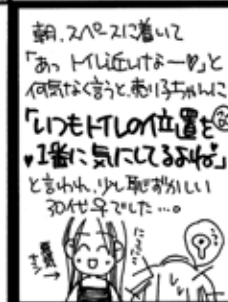 朝、スペースに着いて
「あっ トイレ近いなー♥」と
何気なく言うと、売り子ちゃんに
「いつもトイレの位置を
♥1番に気にしてるよね♥」
と言われ、少し恥ずかしい
30代♀でした…。